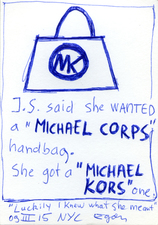 MK
J.S. said she WANTED
a "MICHAEL CORPS"
handbag.
She got a "MICHAEL
KORS" one.
"Luckily I knew what she meant"
09 III 15 NYC egon